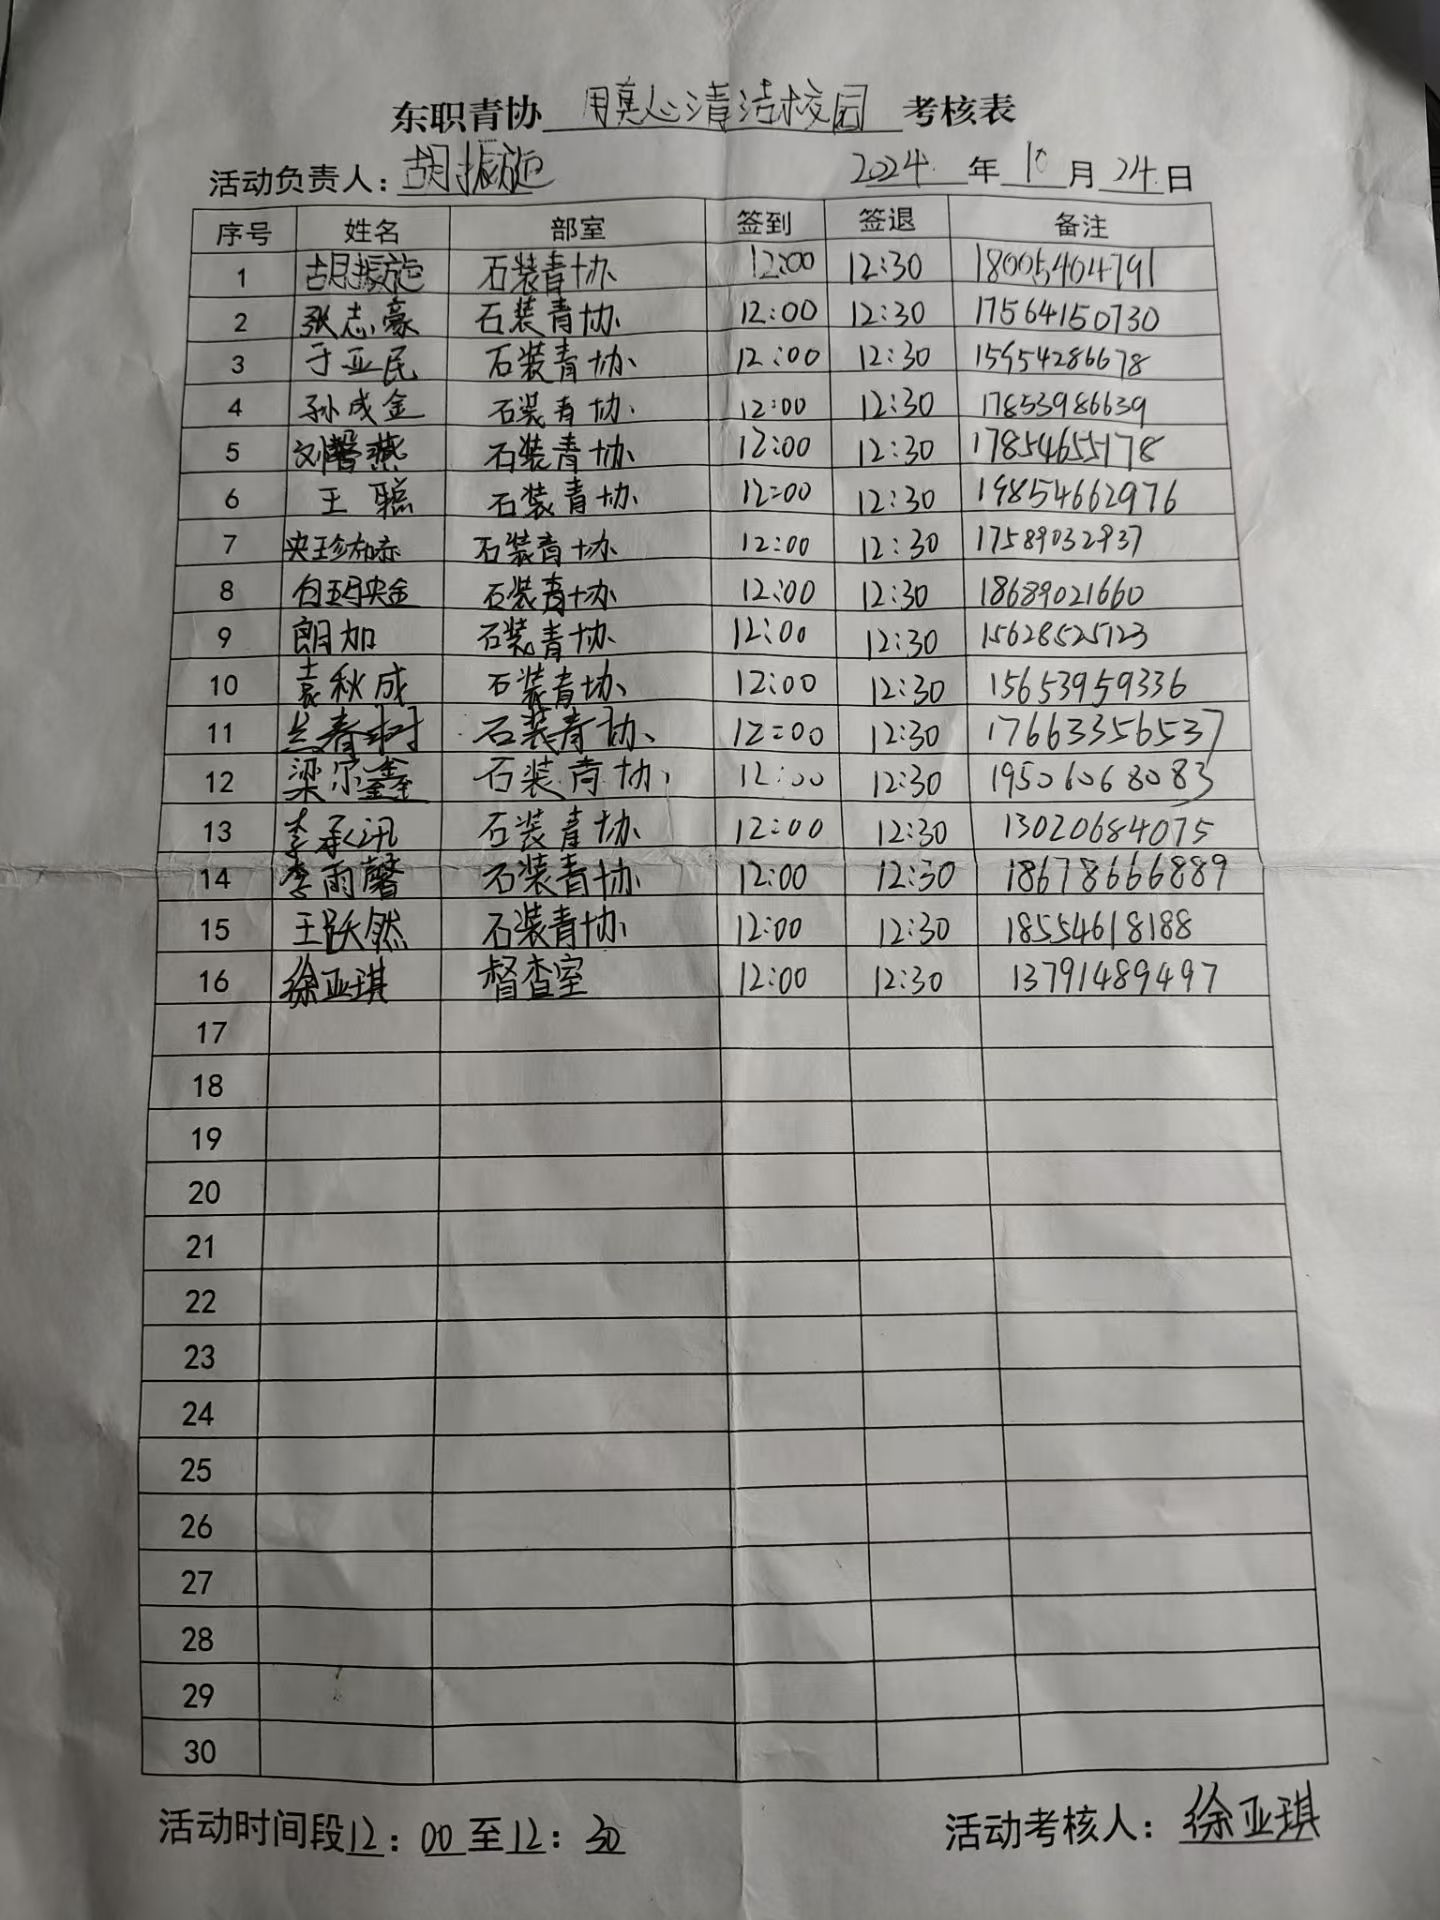 东职青协 用真心清洁校园 考核表
活动负责人：胡振旋 2024 年 10 月 24 日
序号 姓名 部室 签到 签退 备注
1 胡振旋 石装青协 12:00 12:30 18005404791
2 张志豪 石装青协 12:00 12:30 17564150730
3 于亚民 石装青协 12:00 12:30 15954286678
4 孙成金 石装青协 12:00 12:30 17853986639
5 刘馨燕 石装青协 12:00 12:30 17854655178
6 王聪 石装青协 12:00 12:30 19854662976
7 央珍加赤 石装青协 12:00 12:30 17589032937
8 白玛央金 石装青协 12:00 12:30 18689021660
9 朗加 石装青协 12:00 12:30 15628525123
10 袁秋成 石装青协 12:00 12:30 15653959336
11 兰春树 石装青协 12:00 12:30 17663356537
12 梁尔鑫 石装青协 12:00 12:30 19506068083
13 李承讯 石装青协 12:00 12:30 13020684075
14 李雨馨 石装青协 12:00 12:30 18678666889
15 王跃然 石装青协 12:00 12:30 18554618188
16 徐亚琪 督查室 12:00 12:30 13791489497
17
18
19
20
21
22
23
24
25
26
27
28
29
30
活动时间段12：00至12：30 活动考核人：徐亚琪